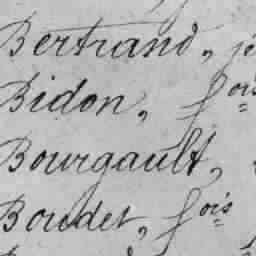 Bertrand,
Bidon, fois
Bourgault,
Boudet, fois